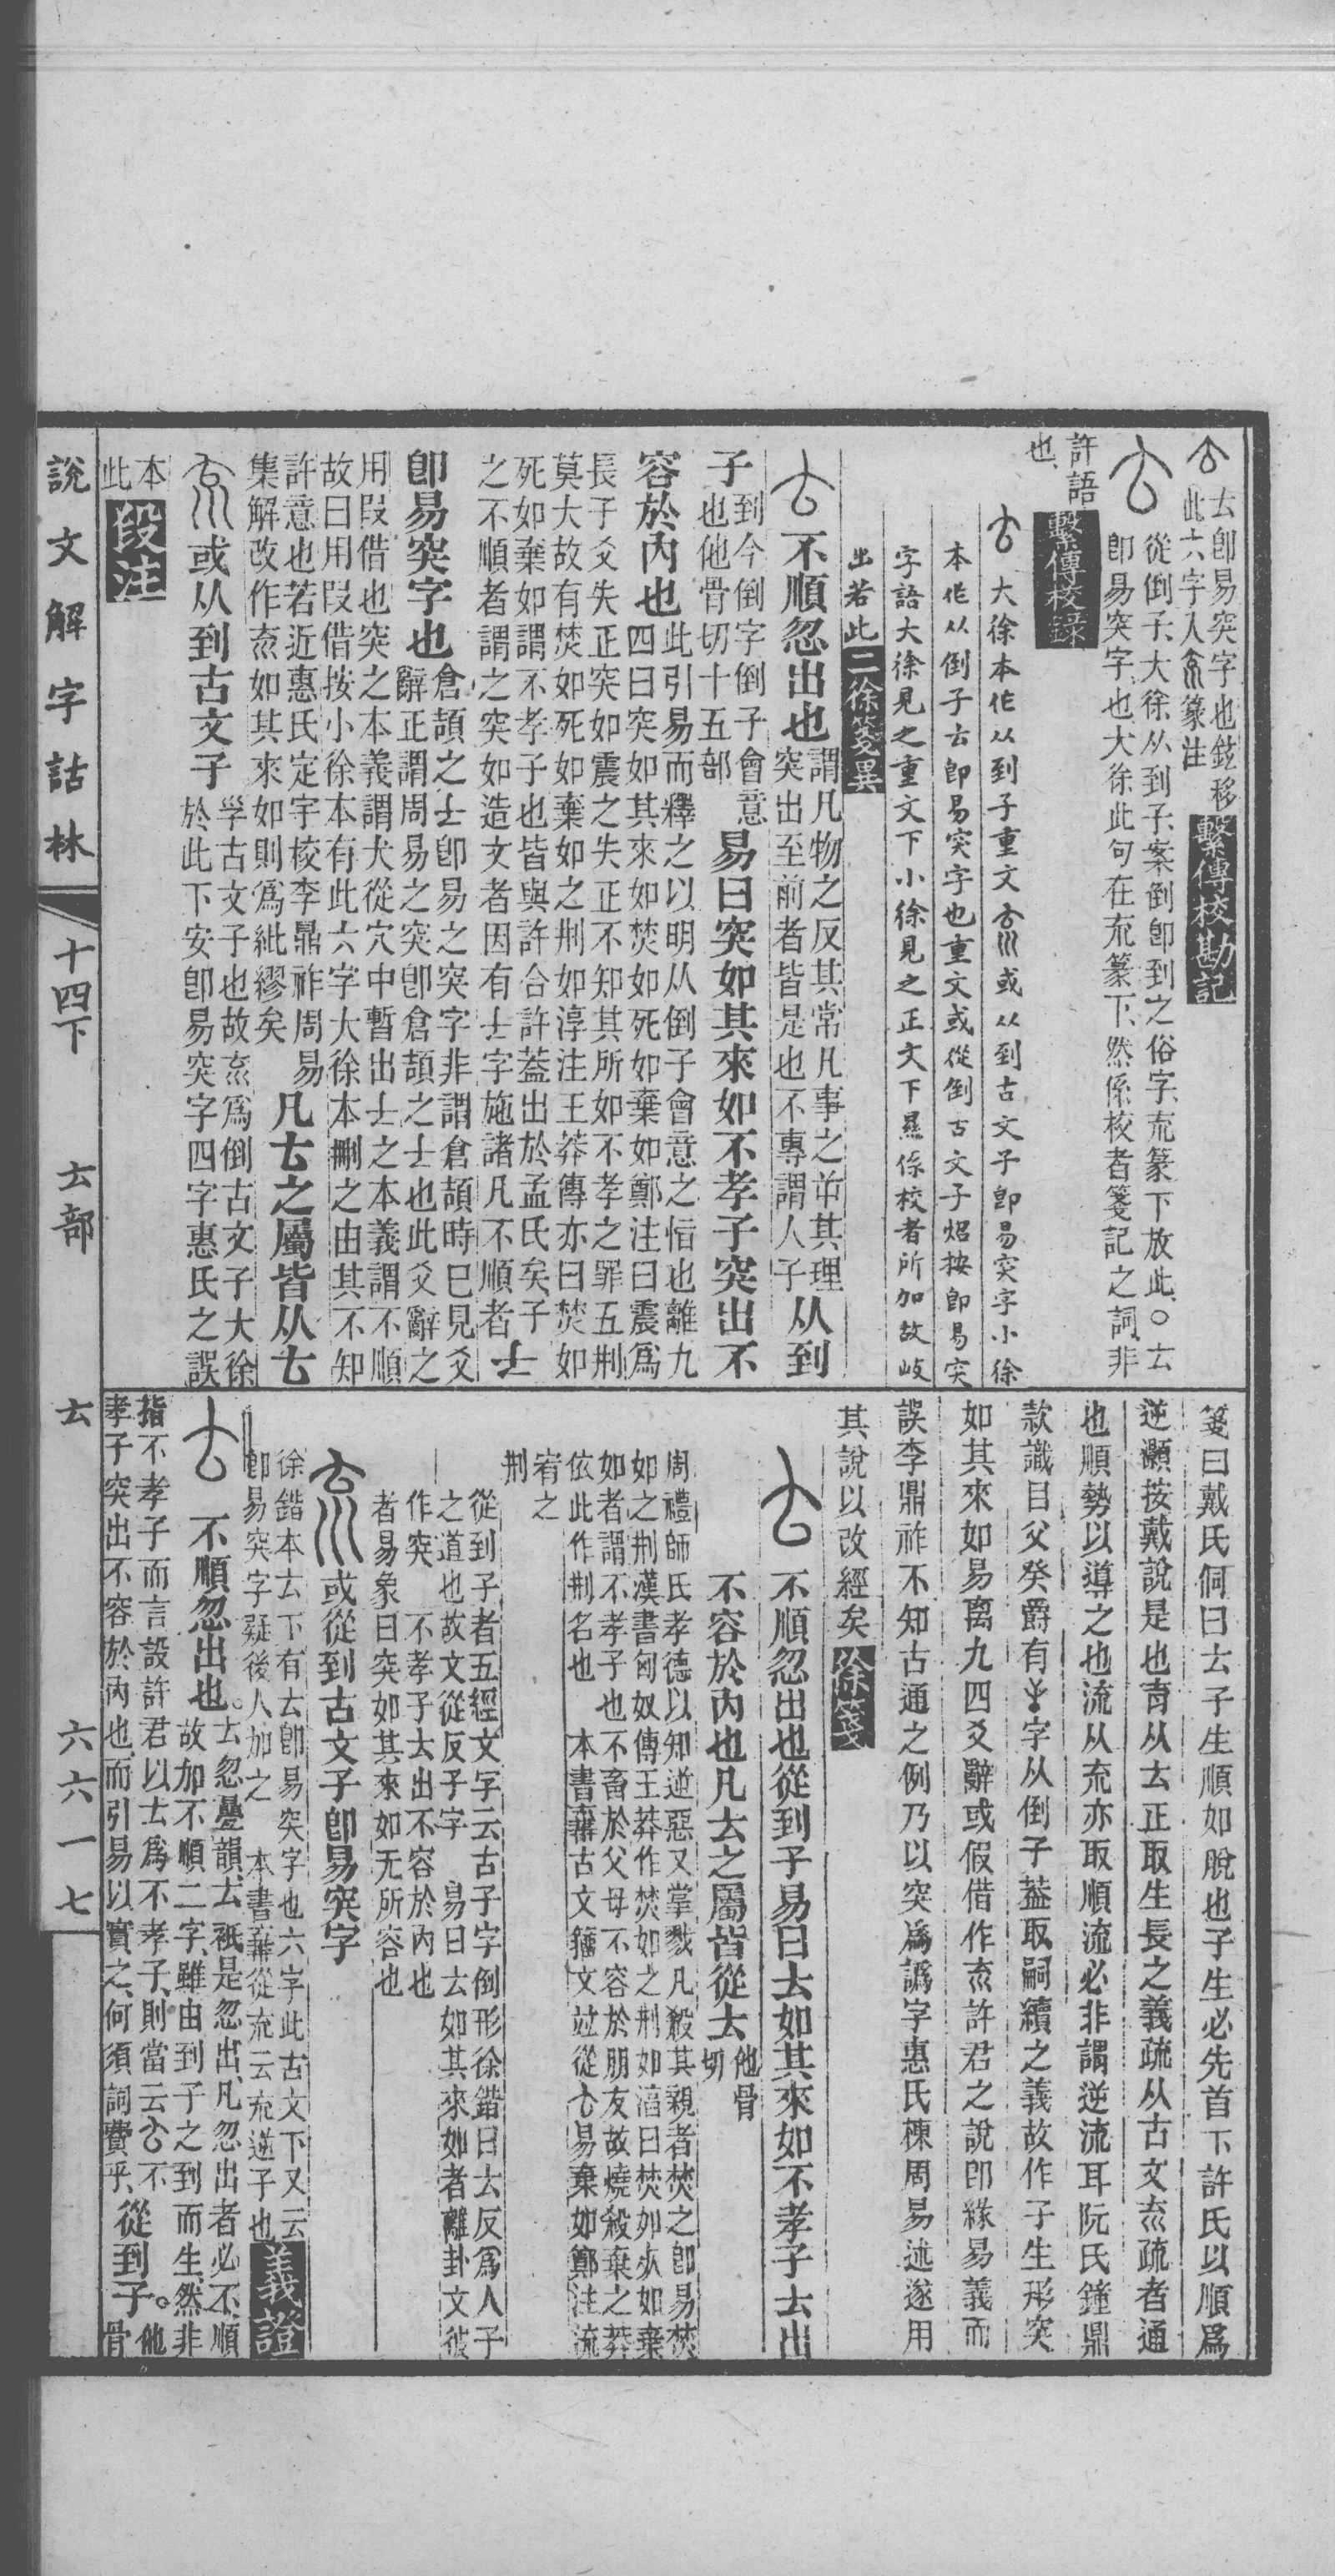 𠫓卽易突字也鉉移
此六字入㐬篆注
繫傳校勘記
從倒子、大徐从到子、案倒卽到之俗字、㐬篆下放此、○𠫓
卽易突字也、大徐此句在㐬篆下、然係校者箋記之詞、非
許語
也、
繫傳校錄
大徐本作从到子重文㐬或从到古文子卽易突字小徐
本作从倒子𠫓卽易突字也重文或從倒古文子炤按卽易突
字語大徐見之重文下小徐見之正文下㬎係校者所加故歧
出若此
二徐箋異
不順忽出也
謂凡物之反其常凡事之逆其理
突出至前者皆是也不專謂人子
从到
子
到今倒字倒子會意
也他骨切十五部
易曰突如其來如不孝子突出不
容於內也
此引易而釋之以明从倒子會意之恉也離九
四曰突如其來如焚如死如棄如鄭注曰震爲
長子爻失正突如震之失正不知其所如不孝之罪五刑
莫大故有焚如死如棄如之刑如淳注王莽傳亦曰焚如
死如棄如謂不孝子也皆與許合許葢出於孟氏矣子
之不順者謂之突如造文者因有𠫓字施諸凡不順者
𠫓
卽易突字也
倉頡之𠫓卽易之突字非謂倉頡時已見爻
辭正謂周易之突卽倉頡之𠫓也此爻辭之
用叚借也突之本義謂犬從穴中暫出𠫓之本義謂不順
故曰用叚借按小徐本有此六字大徐本刪之由其不知
許意也若近惠氏定宇校李鼎祚周易
集解改作㐬如其來如則爲紕繆矣
凡𠫓之屬皆从𠫓
或从到古文子
㜽古文子也故㐬爲倒古文子大徐
於此下安卽易突字四字惠氏之誤
本
此
段注
箋曰戴氏侗曰𠫓子生順如脫也子生必先首下許氏以順爲
逆灝按戴說是也育从𠫓正取生長之義疏从古文㐬疏者通
也順勢以導之也流从㐬亦取順流必非謂逆流耳阮氏鐘鼎
款識目父癸爵有字从倒子葢取嗣續之義故作子生形突
如其來如易离九四爻辭或假借作㐬許君之說卽緣易義而
誤李鼎祚不知古通之例乃以突爲譌字惠氏棟周易述遂用
其說以改經矣
徐箋
不順忽出也從到子易曰𠫓如其來如不孝子𠫓出
不容於內也凡𠫓之屬皆從𠫓
他骨
切
周禮師氏孝德以知逆惡又掌戮凡殺其親者焚之卽易焚
如之刑漢書匈奴傳王莽作焚如之刑如淳曰焚如死如棄
如者謂不孝子也不畜於父母不容於朋友故燒殺棄之莽
依此作刑名也　本書棄古文籀文竝從𠫓易棄如鄭注流
宥之
刑
從到子者五經文字云古子字倒形徐鍇曰𠫓反爲人子
之道也故文從反子字　易曰𠫓如其來如者離卦文彼
作突　不孝子𠫓出不容於內也
者易象曰突如其來如无所容也
或從到古文子卽易突字
徐鍇本𠫓下有𠫓卽易突字也六字此古文下又云
卽易突字疑後人加之　本書棄從㐬云㐬逆子也
義證
不順忽出也。
𠫓忽疊韻、𠫓祇是忽出、凡忽出者必不順
故加不順二字、雖由到子之到而生、然非
指不孝子而言、設許君以𠫓爲不孝子、則當云𠫓不
孝子突出不容於內也、而引易以實之、何須詞費乎、
從到子。
他
骨
說文解字詁林
十四下
𠫓部
𠫓
六六一七